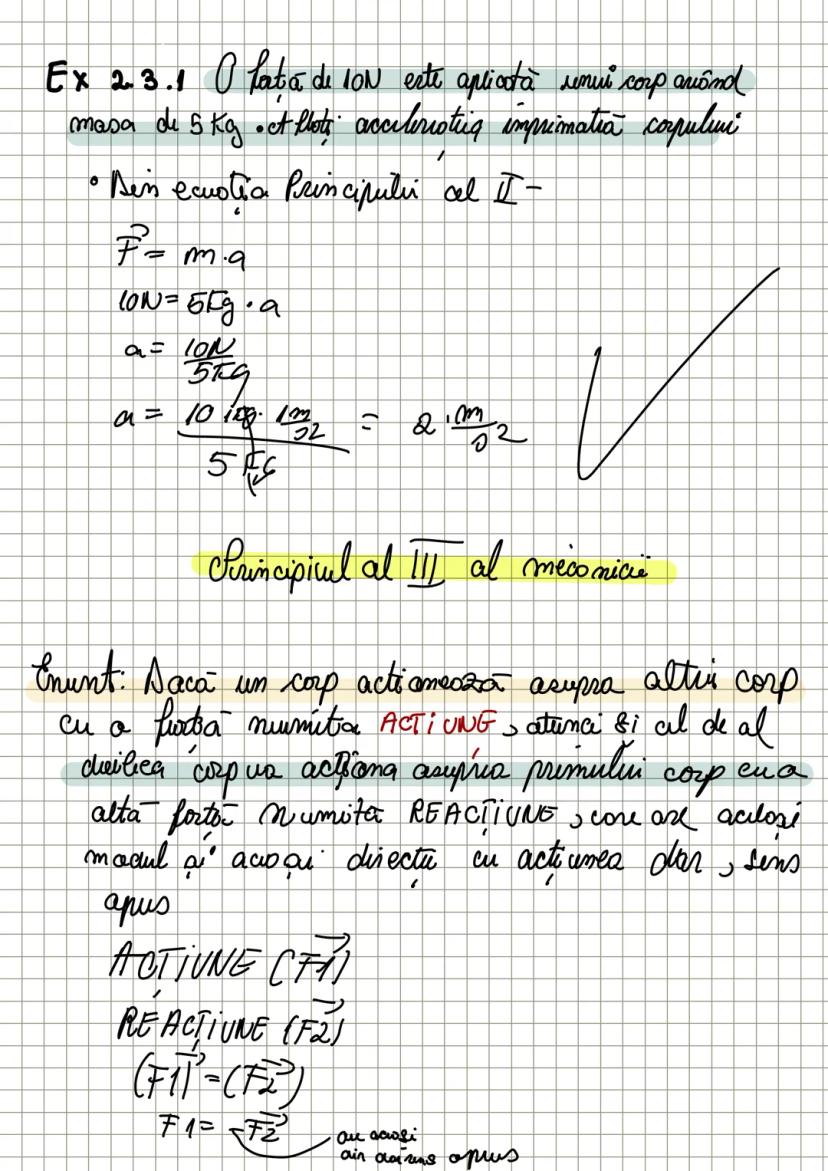 Ex 2.3.1 O forță de 10N este aplicată unui corp având
masa de 5 Kg. Aflați accelerația imprimată corpului
• Din ecuația Principiului al II-
F⃗ = m·a
10N = 5Kg · a
a = 10N / 5Kg
a = 10 kg · 1 m/s2 / 5 Kg = 2 · m/s2
Principiul al III al mecanicii
Enunt: Dacă un corp actionează asupra altui corp
cu o forță numită ACTiUNE, atunci și cel de al
doilea corp va acționa asupra primului corp cu o
altă forță numită REACȚiUNE, care are același
modul și aceași directie cu acțiunea dar, sens
apus
ACȚiUNE (F1⃗)
REACȚiUNE (F2⃗)
(F1⃗) = (F2⃗)
F1 = -F2⃗
au acelasi
opus